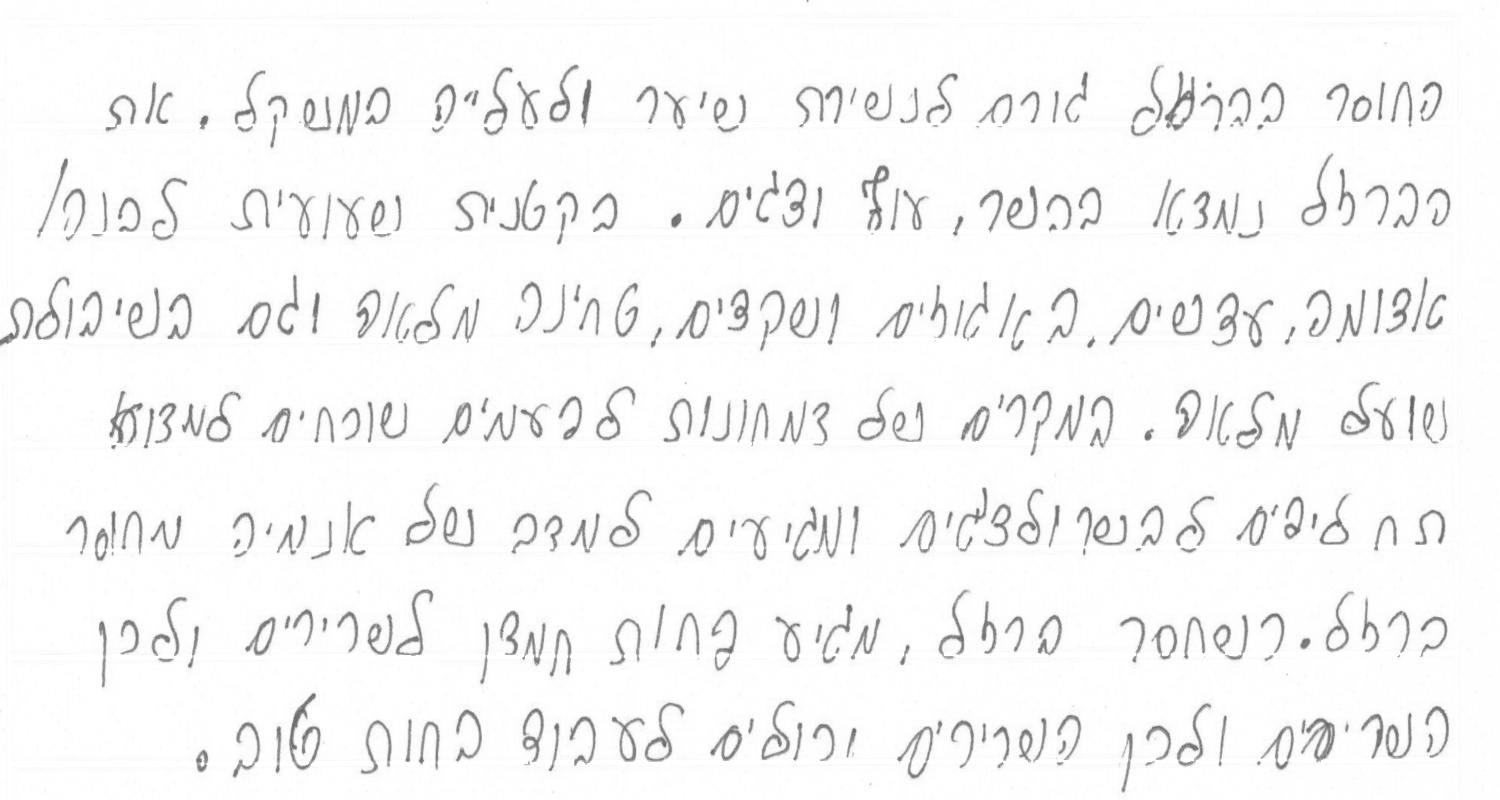 החוסר בברזל גורם לנשירת שיער ולעלייה במשקל. את
הברזל נמצא בבשר, עוף ודגים. בקטנית שעועית לבנה/
אדומה, עדשים. באגוזים ושקדים, טחינה מלאה וגם בשיבולת
שועל מלאה. במקרים של צמחונות לפעמים שוכחים למצוא
תחליפים לבשר ולדגים ומגיעים למצב של אנמיה מחוסר
ברזל. כשחסר ברזל, מגיע פחות חמצן לשרירים ולכן
השרירים ולכן השרירים יכולים לעבוד פחות טוב.